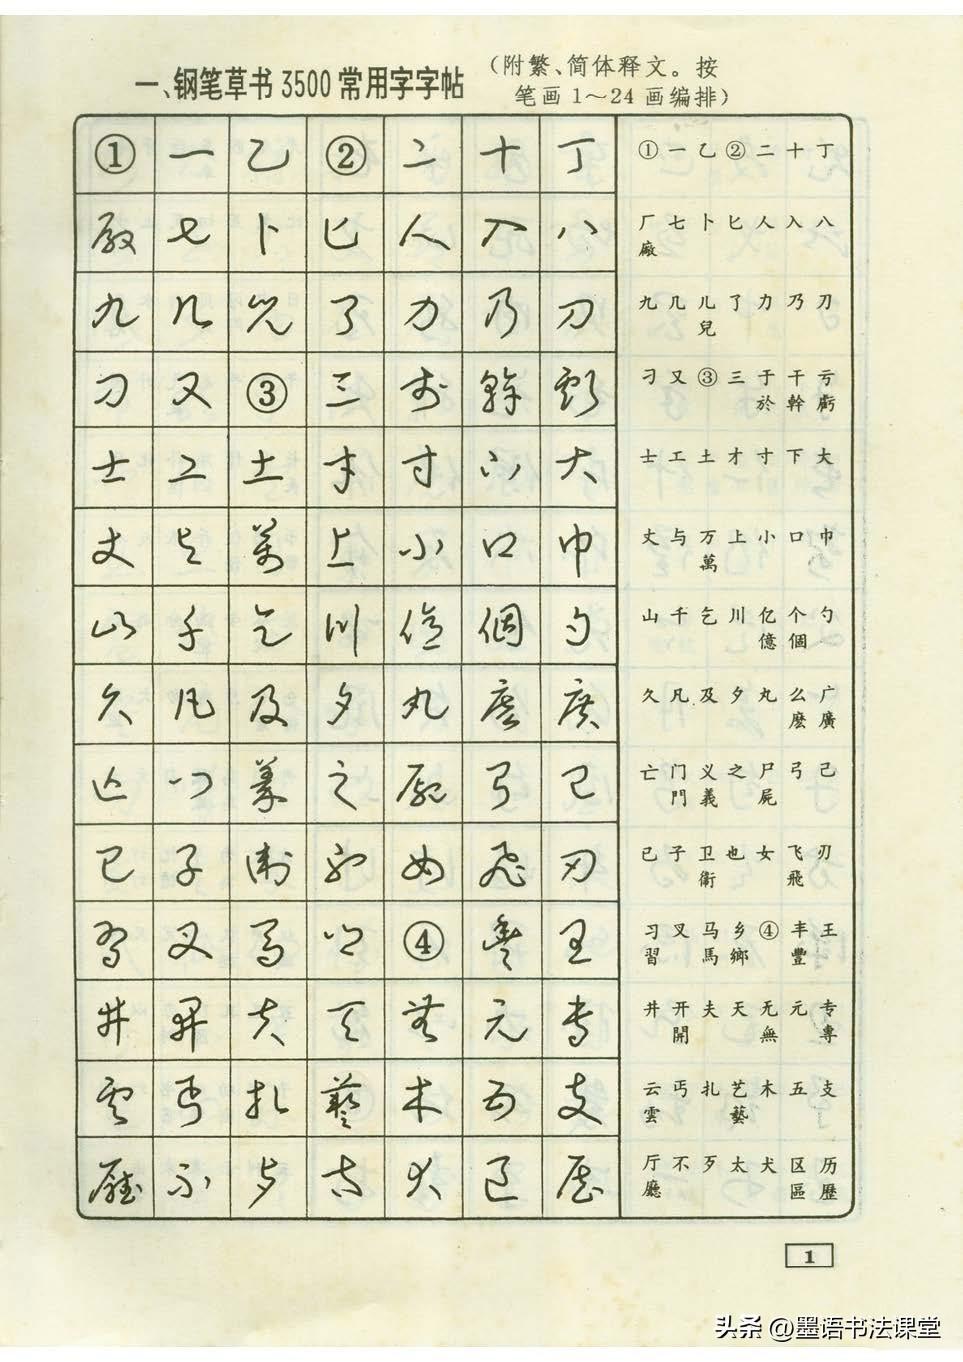 一、钢笔草书3500常用字字帖
(附繁、简体释文。按
笔画1～24画编排)
① 一 乙 ② 二 十 丁
① 一 乙 ② 二 十 丁
廠 七 卜 匕 人 入 八
厂 七 卜 匕 人 入 八
廠
九 几 兒 了 力 乃 刀
九 几 儿 了 力 乃 刀
兒
刁 又 ③ 三 於 幹 虧
刁 又 ③ 三 于 干 亏
於 幹 虧
士 工 土 才 寸 下 大
士 工 土 才 寸 下 大
丈 与 萬 上 小 口 巾
丈 与 万 上 小 口 巾
萬
山 千 乞 川 億 個 勺
山 千 乞 川 亿 个 勺
億 個
久 凡 及 夕 丸 麽 廣
久 凡 及 夕 丸 么 广
麽 廣
亡 门 義 之 屍 弓 己
亡 门 义 之 尸 弓 己
門 義 屍
已 子 衛 也 女 飛 刃
已 子 卫 也 女 飞 刃
衛 飛
習 叉 馬 鄉 ④ 豐 王
习 叉 马 乡 ④ 丰 王
習 馬 鄉 豐
井 開 夫 天 無 元 專
井 开 夫 天 无 元 专
開 無 專
雲 丐 扎 藝 木 五 支
云 丐 扎 艺 木 五 支
雲 藝
廳 不 歹 太 犬 區 歷
厅 不 歹 太 犬 区 历
廳 區 歷
1
头条 @墨语书法课堂